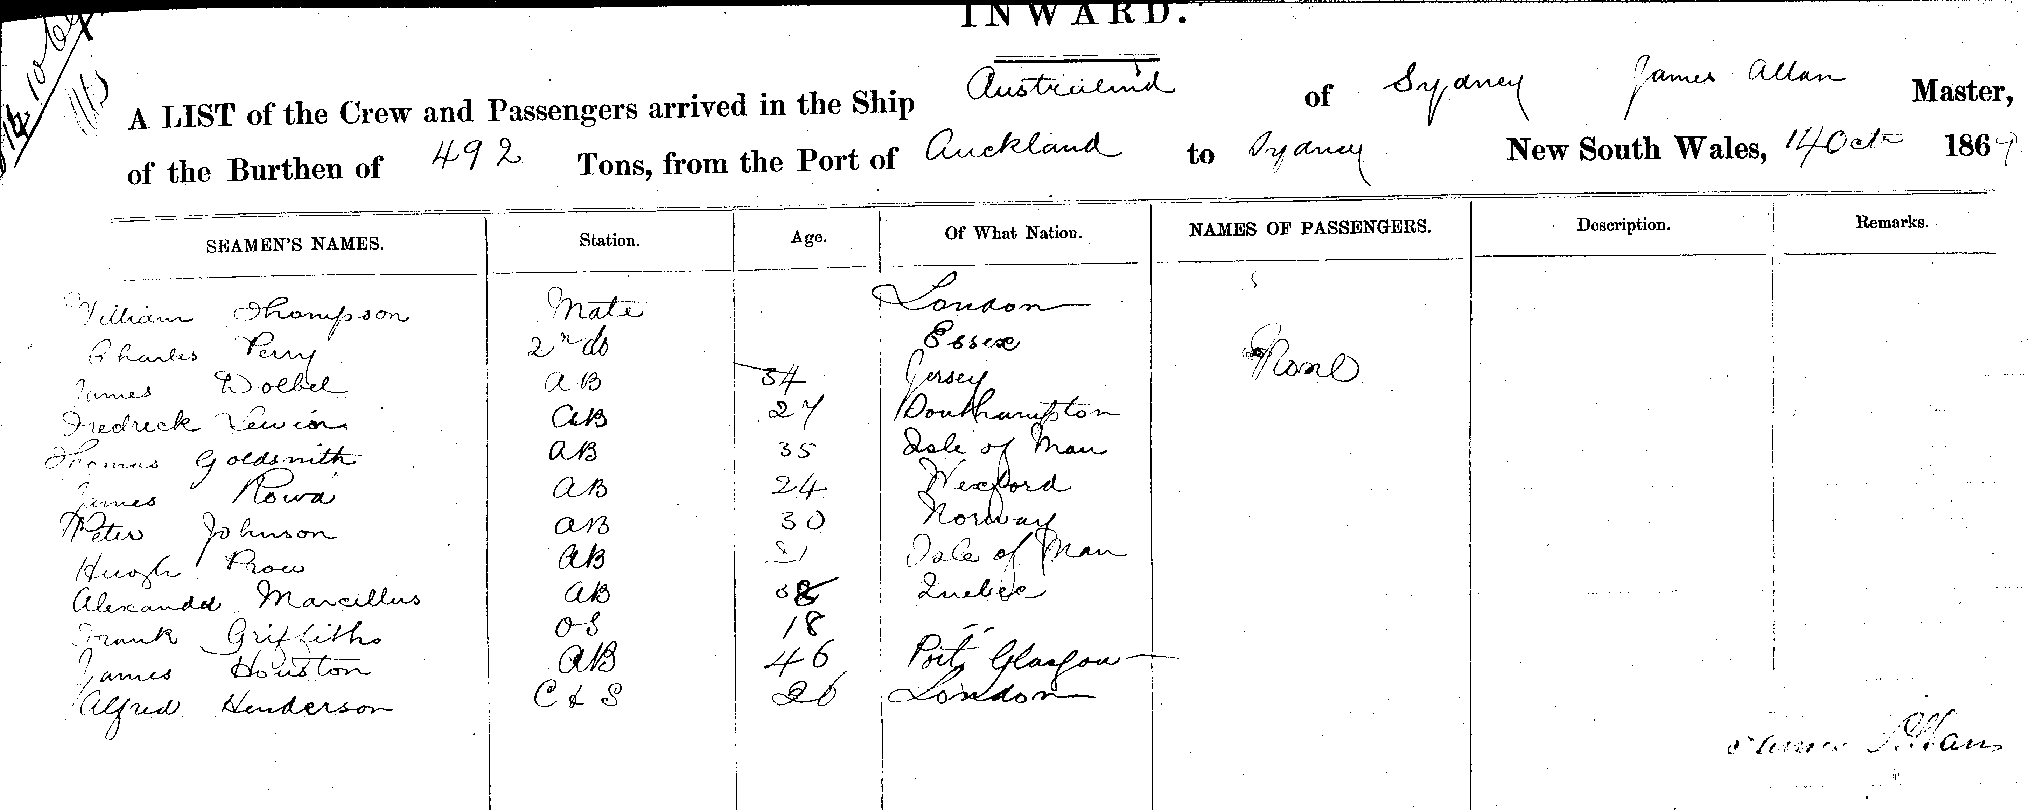 INWARD.
A LIST of the Crew and Passengers arrived in the Ship of Sydney James Allan Master,
of the Burthen of 492 Tons, from the Port of Auckland to Sydney New South Wales, 14 Oct 186
SEAMEN'S NAMES. Station. Age. Of What Nation. NAMES OF PASSENGERS. Description. Remarks.
William Thompson Mate London
Charles Perry 2nd do Essex None
James AB 34 Jersey
Fredrick Lewin AB 27 Southampton
Thomas Goldsmith AB 35 Isle of Man
James AB 24 Wexford
Peter Johnson AB 30 Norway
Hugh AB Isle of Man
Alexander Marcillus AB Quebec
Frank Griffiths OS 18 "
James Houston AB 46 Port Glasgow
Alfred Henderson C & S 26 London
James Allan